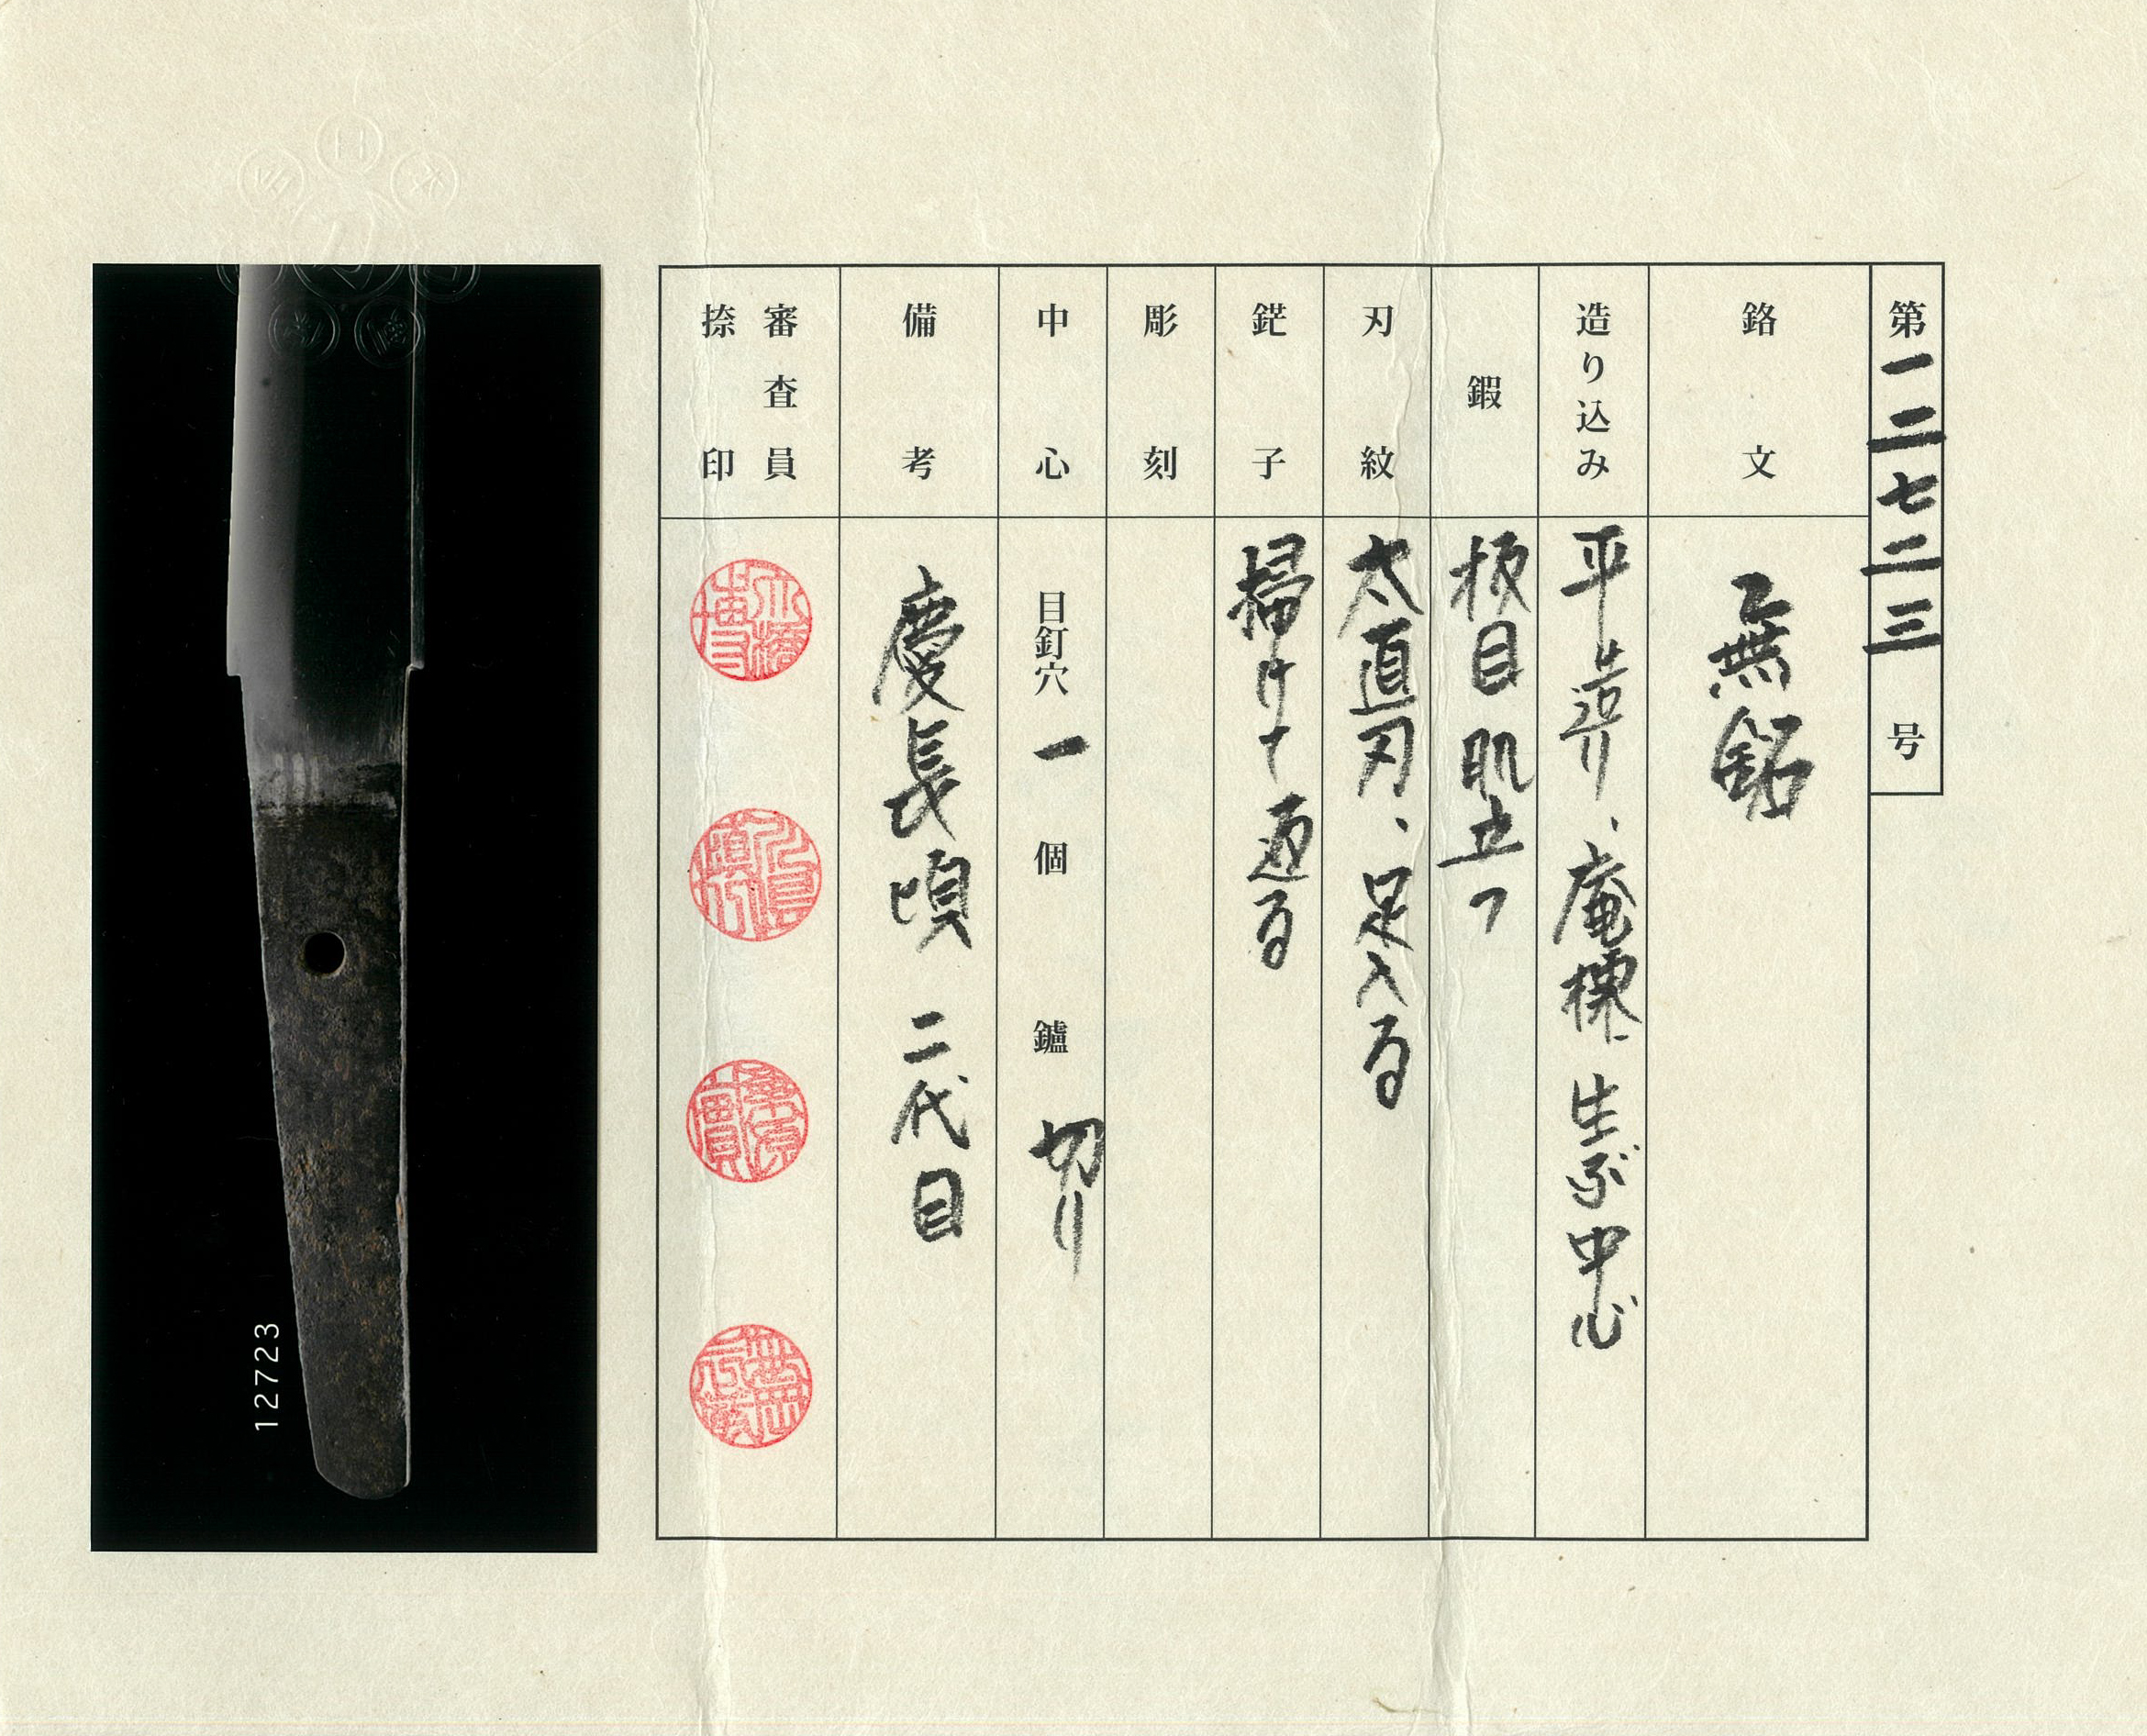 第一二七二三号
銘文 無銘
造り込み 平造り、庵棟、生ぶ中心
鍛 板目肌立つ
刃紋 太直刃、足入る
鋩子 掃けて返る
彫刻
中心 目釘穴 一 個 鑢 切り
備考 慶長頃 二代目
審査員
捺印
12723